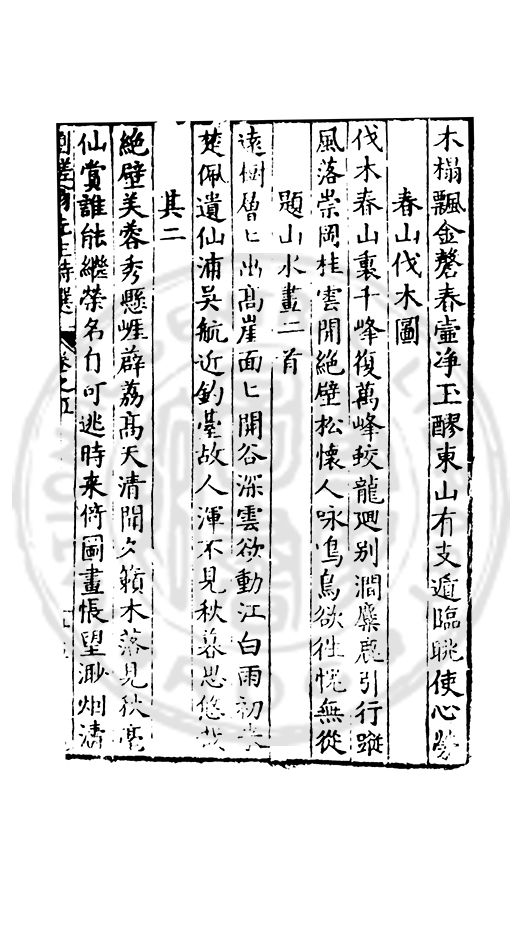 木榻飄金磬春壷净玉醪東山有支遁臨眺使心勞
春山伐木圖
伐木春山裏千峰復萬峰蛟龍廻别澗麋鹿引行蹤
風落崇岡桂雲開絶壁松懷人咏鳴鳥欲徃愧無從
題山水畫二首
遠樹層匕出高崖面匕開谷深雲欲動江白雨初來
楚佩遺仙浦吳航近釣臺故人渾不見秋暮思悠哉
其二
絶壁芙蓉秀懸崖薜荔高天清聞夕籟木落見秋毫
仙賞誰能繼榮名乍可逃時来倚圖畫悵望渺烟濤
卷之五